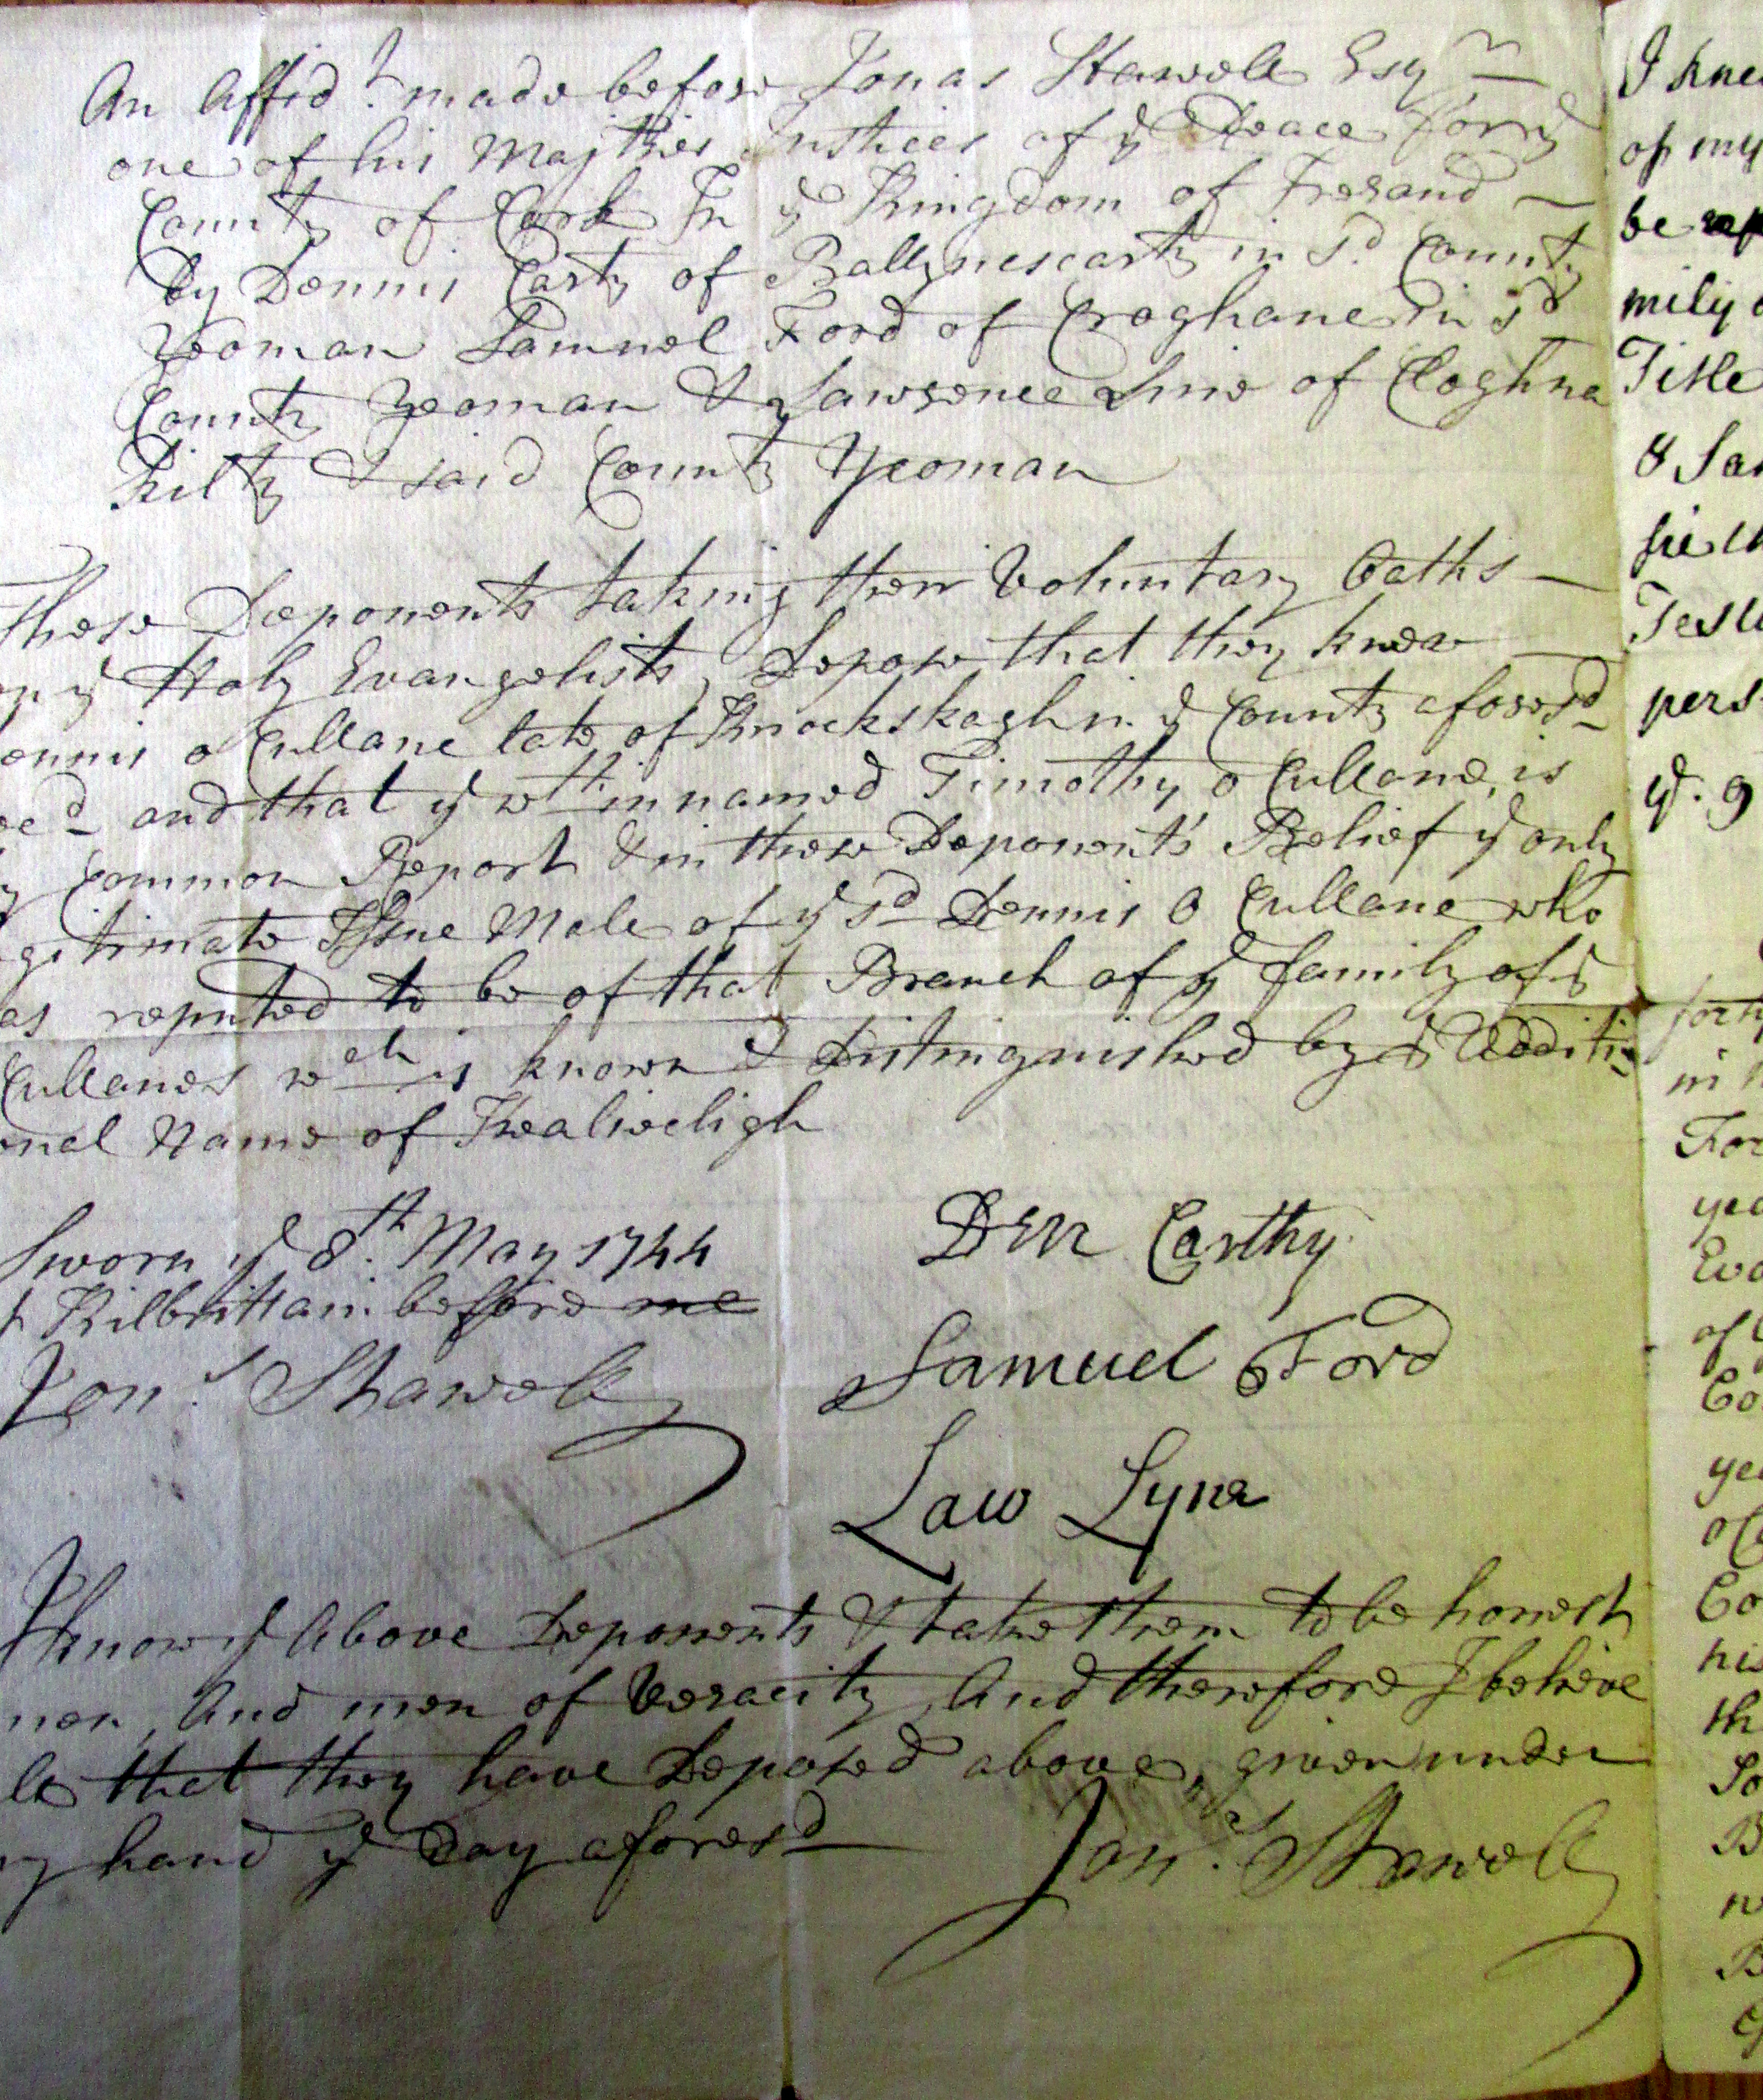 An Affid.t made before Jonas Stawell Esqr
one of his Majties Justices of ye Peace for ye
County of Cork In ye Kingdom of Ireland
by Dennis Carty of Ballynescarty in sd. County
Yeoman Samuel Ford of Croghane in sd
County Yeoman & Lawrence Line of Cloghna
kilty & said County Yeoman
These Deponents taking their Voluntary Oaths
on ye Holy Evangelists, Depose that they knew
ennis o Cullane late of Knockskagh in ye County aforesd
ced and that ye wthin named Timothy o Cullane, is
y Common Report & in these Deponents' Belief ye only
gitimate Issue Male of ye sd Dennis O Cullane who
as reputed to be of that Branch of ye family of ye
Cullanes wch is known & Distinguished by ye Additi-
onal Name of
Sworn ye 8.th May 1744
t Kilbrittain before me
Jon.s Stawell
Den Carthy
Samuel Ford
Law Lyne
I know ye Above Deponents & take them to be honest
men, And men of Veracity, And therefore I believe
that they have Deposed above, given under
y hand ye Day aforesd
Jon.s Stawell
I kne
of my
be
mily
Title
8 Sa
Test
pers
ye. 9
forth
in
For
yea
Eva
of
Co
yea
Co
his
th
So
B
B